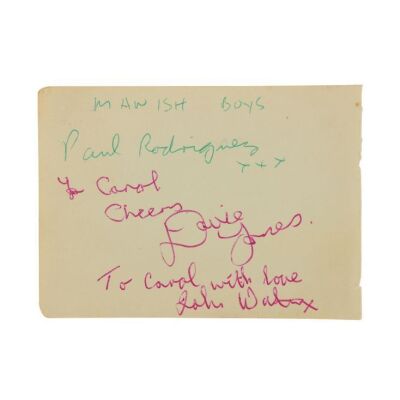 MANISH BOYS
Paul Rodriguez
xxx
To Carol
Cheers
Davie Jones.
To Carol with love
John Watson x